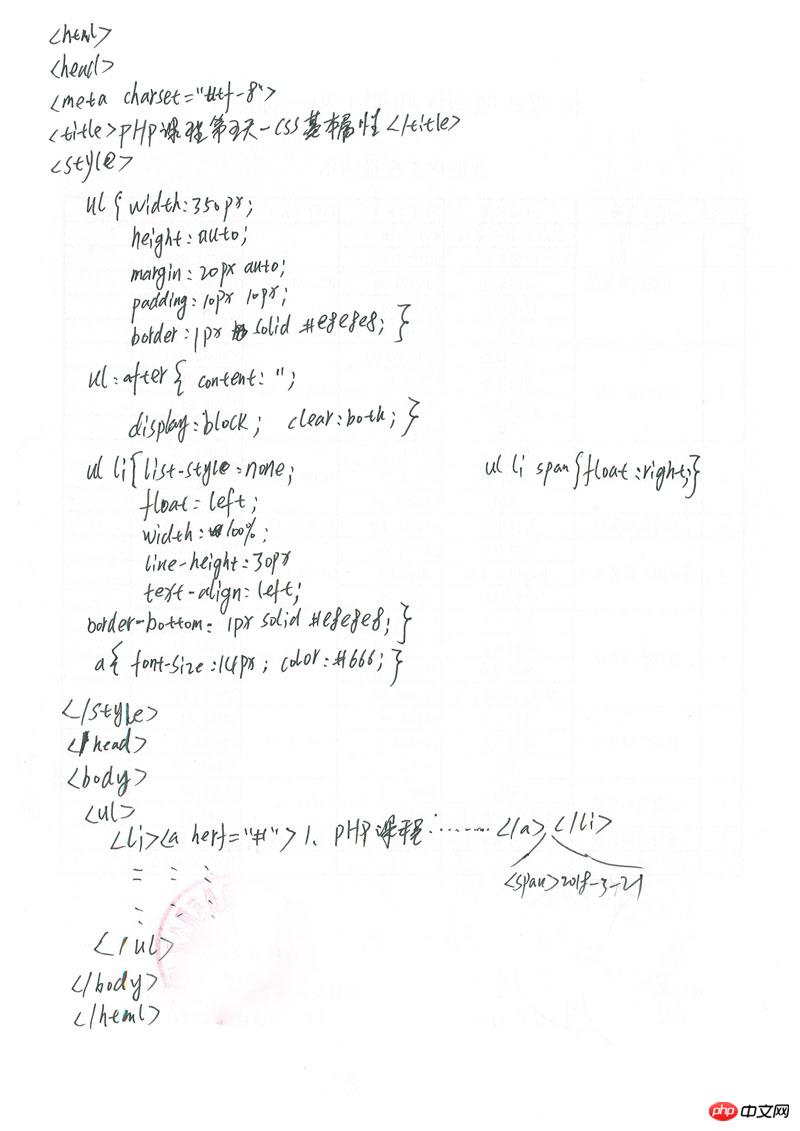 <html>
<head>
<meta charset="utf-8">
<title>PHP课程第五天-CSS基本属性</title>
<style>
ul{width:350px;
height:auto;
margin:20px auto;
padding:10px 10px;
border:1px solid #e8e8e8;}
ul:after{content:'';
display:block; clear:both;}
ul li{list-style:none;
ul li span{float:right;}
float:left;
width:100%;
line-height:30px
text-align:left;
border-bottom:1px solid #e8e8e8;}
a{font-size:14px; color:#666;}
</style>
</head>
<body>
<ul>
<li><a herf="#">1、PHP课程……</a></li>
<span>2018-3-21
</ul>
</body>
</html>
php中文网